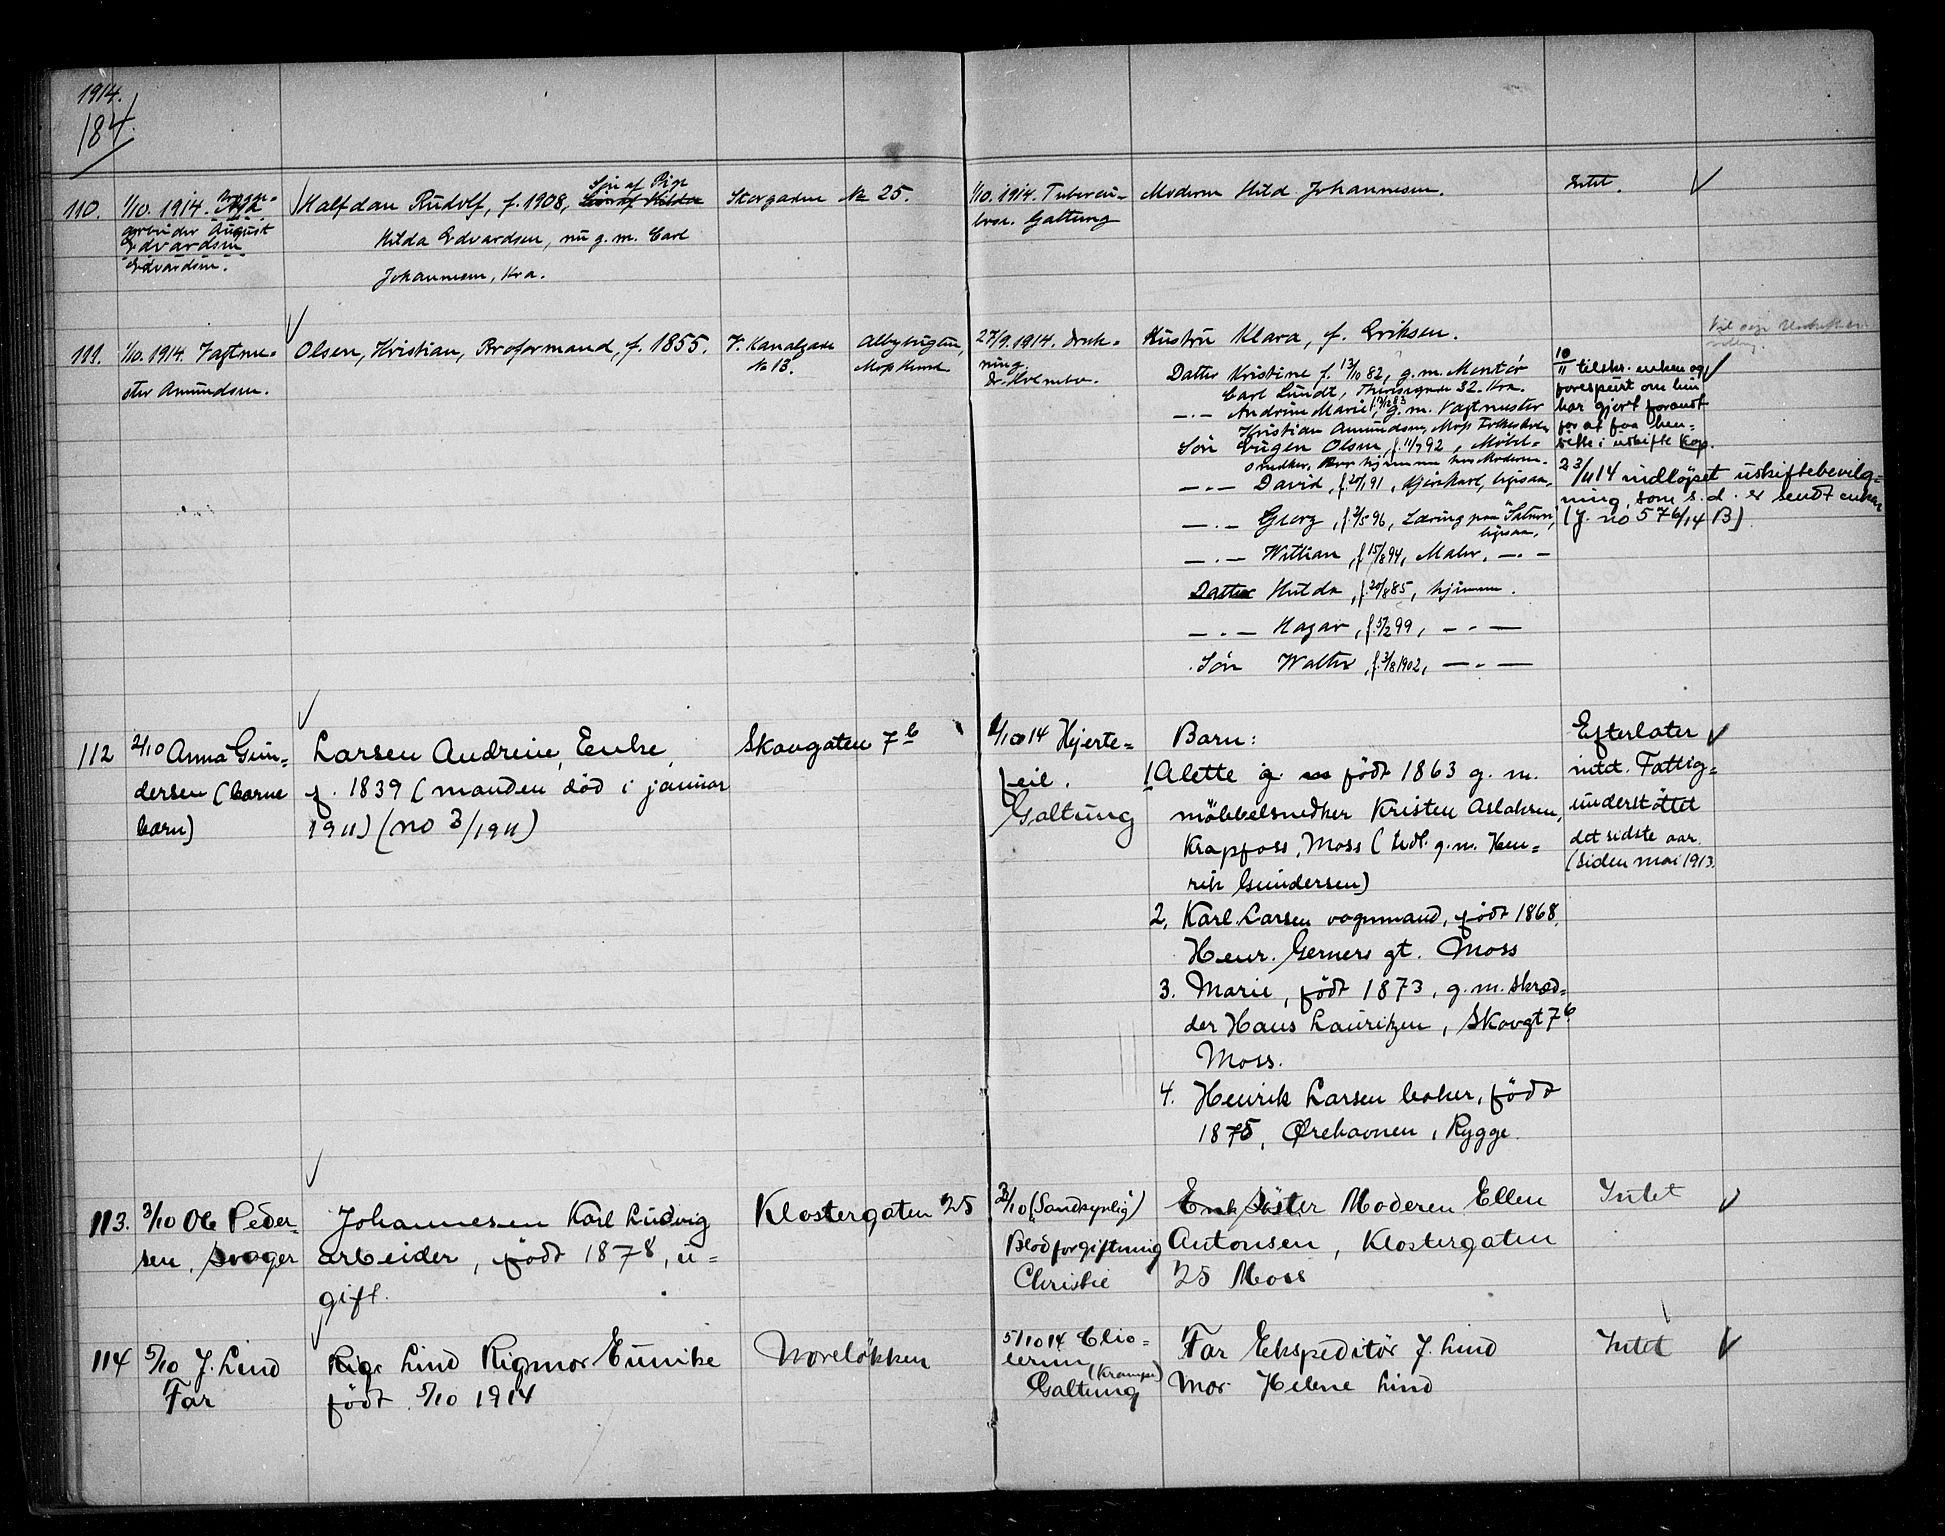 1914.
184.
110.
1/10. 1914.
arbeider August
Edvardsen
Edvardsen.
Halfdan Rudolf, f. 1908,
Søn af Pige
Hilda Edvardsen, nu g. m. Carl
Johannesen, Kra.
Storgaden № 25.
1/10. 1914. Tubercu-
lose. Galtung
Moderen Hild Johannesen.
Intet.
111.
1/10. 1914. Vagtme-
ster Amundsen.
Olsen, Kristian, Broformand, f. 1855.
V. Kanalgade
№ 13.
Albybugten,
Moss Kanal
27/9. 1914. Druk-
ning.
Hustru Klara, f. Eriksen.
Datter Kristine f. 13/10 82, g. m. Montør
Carl Lundt, 32. Kra.
— . — Andrine Marie, g. m. Vagtmester
Kristian Amundsen, Moss
Søn Eugen Olsen, f. 11/7 92, Møbel-
snedker, hjemme hos Moderen.
— . — David, f. 20/1 91, ligesaa,
— . — Georg, f. 2/5 96, Læring paa "Saturn",
ligesaa,
— . — William, f. 15/8 94, Maler, — . —
Datter Hulda, f. 20/8 85, hjemme.
— . — Hagar, f. 5/2 99, — . —
Søn Walter, f. 3/8 1902, — . —
10/11 tilskr. enken og
forespurt om hun
har gjort
for at faa hen-
sitte i uskifte Kop.
23/11 14 indløpet uskiftebevilg=
ning, som s. d. er sendt enken
(J. no 576/14 B).
112
2/10 Anna Gun=
dersen (barne
barn)
Larsen Andrine, Enke,
f. 1839 (manden død i januar
1911) (no 3/1911)
Skovgaten 7 b
1/10 14 Hjerte=
feil.
Galtung
Barn:
1 Alette g. født 1863 g. m.
möbbelsnedker Kristen Aslaksen,
Krapfoss, Moss (tidl. g. m. Hen=
rik Gundersen)
2. Karl Larsen vognmand, født 1868,
Henr. Gerners gt. Moss
3. Marie, født 1873, g. m. skræd=
der Hans Lauritzen, Skovgt 7 b
Moss.
4. Henrik Larsen baker, født
1875, Ørehavnen, Rygge.
Efterlater
intet. Fattig=
understöttet
det sidste aar.
(siden mai 1913.
113.
3/10 Ole Peder-
sen, Svoger
Johannesen Karl Ludvig
arbeider, født 1878, u=
gift.
Klostergaten 25
2/10 (Sandsynlig)
Blodforgiftning
Christie
Moderen Ellen
Antonsen, Klostergaten
25 Moss
Intet
114
5/10 J. Lind
Far
Lind Rigmor Eunike
født 5/10 1914
Noreløkken
5/10 14
(Krampe)
Galtung
Far Ekspeditør J. Lind
Mor Helene Lind
Intet